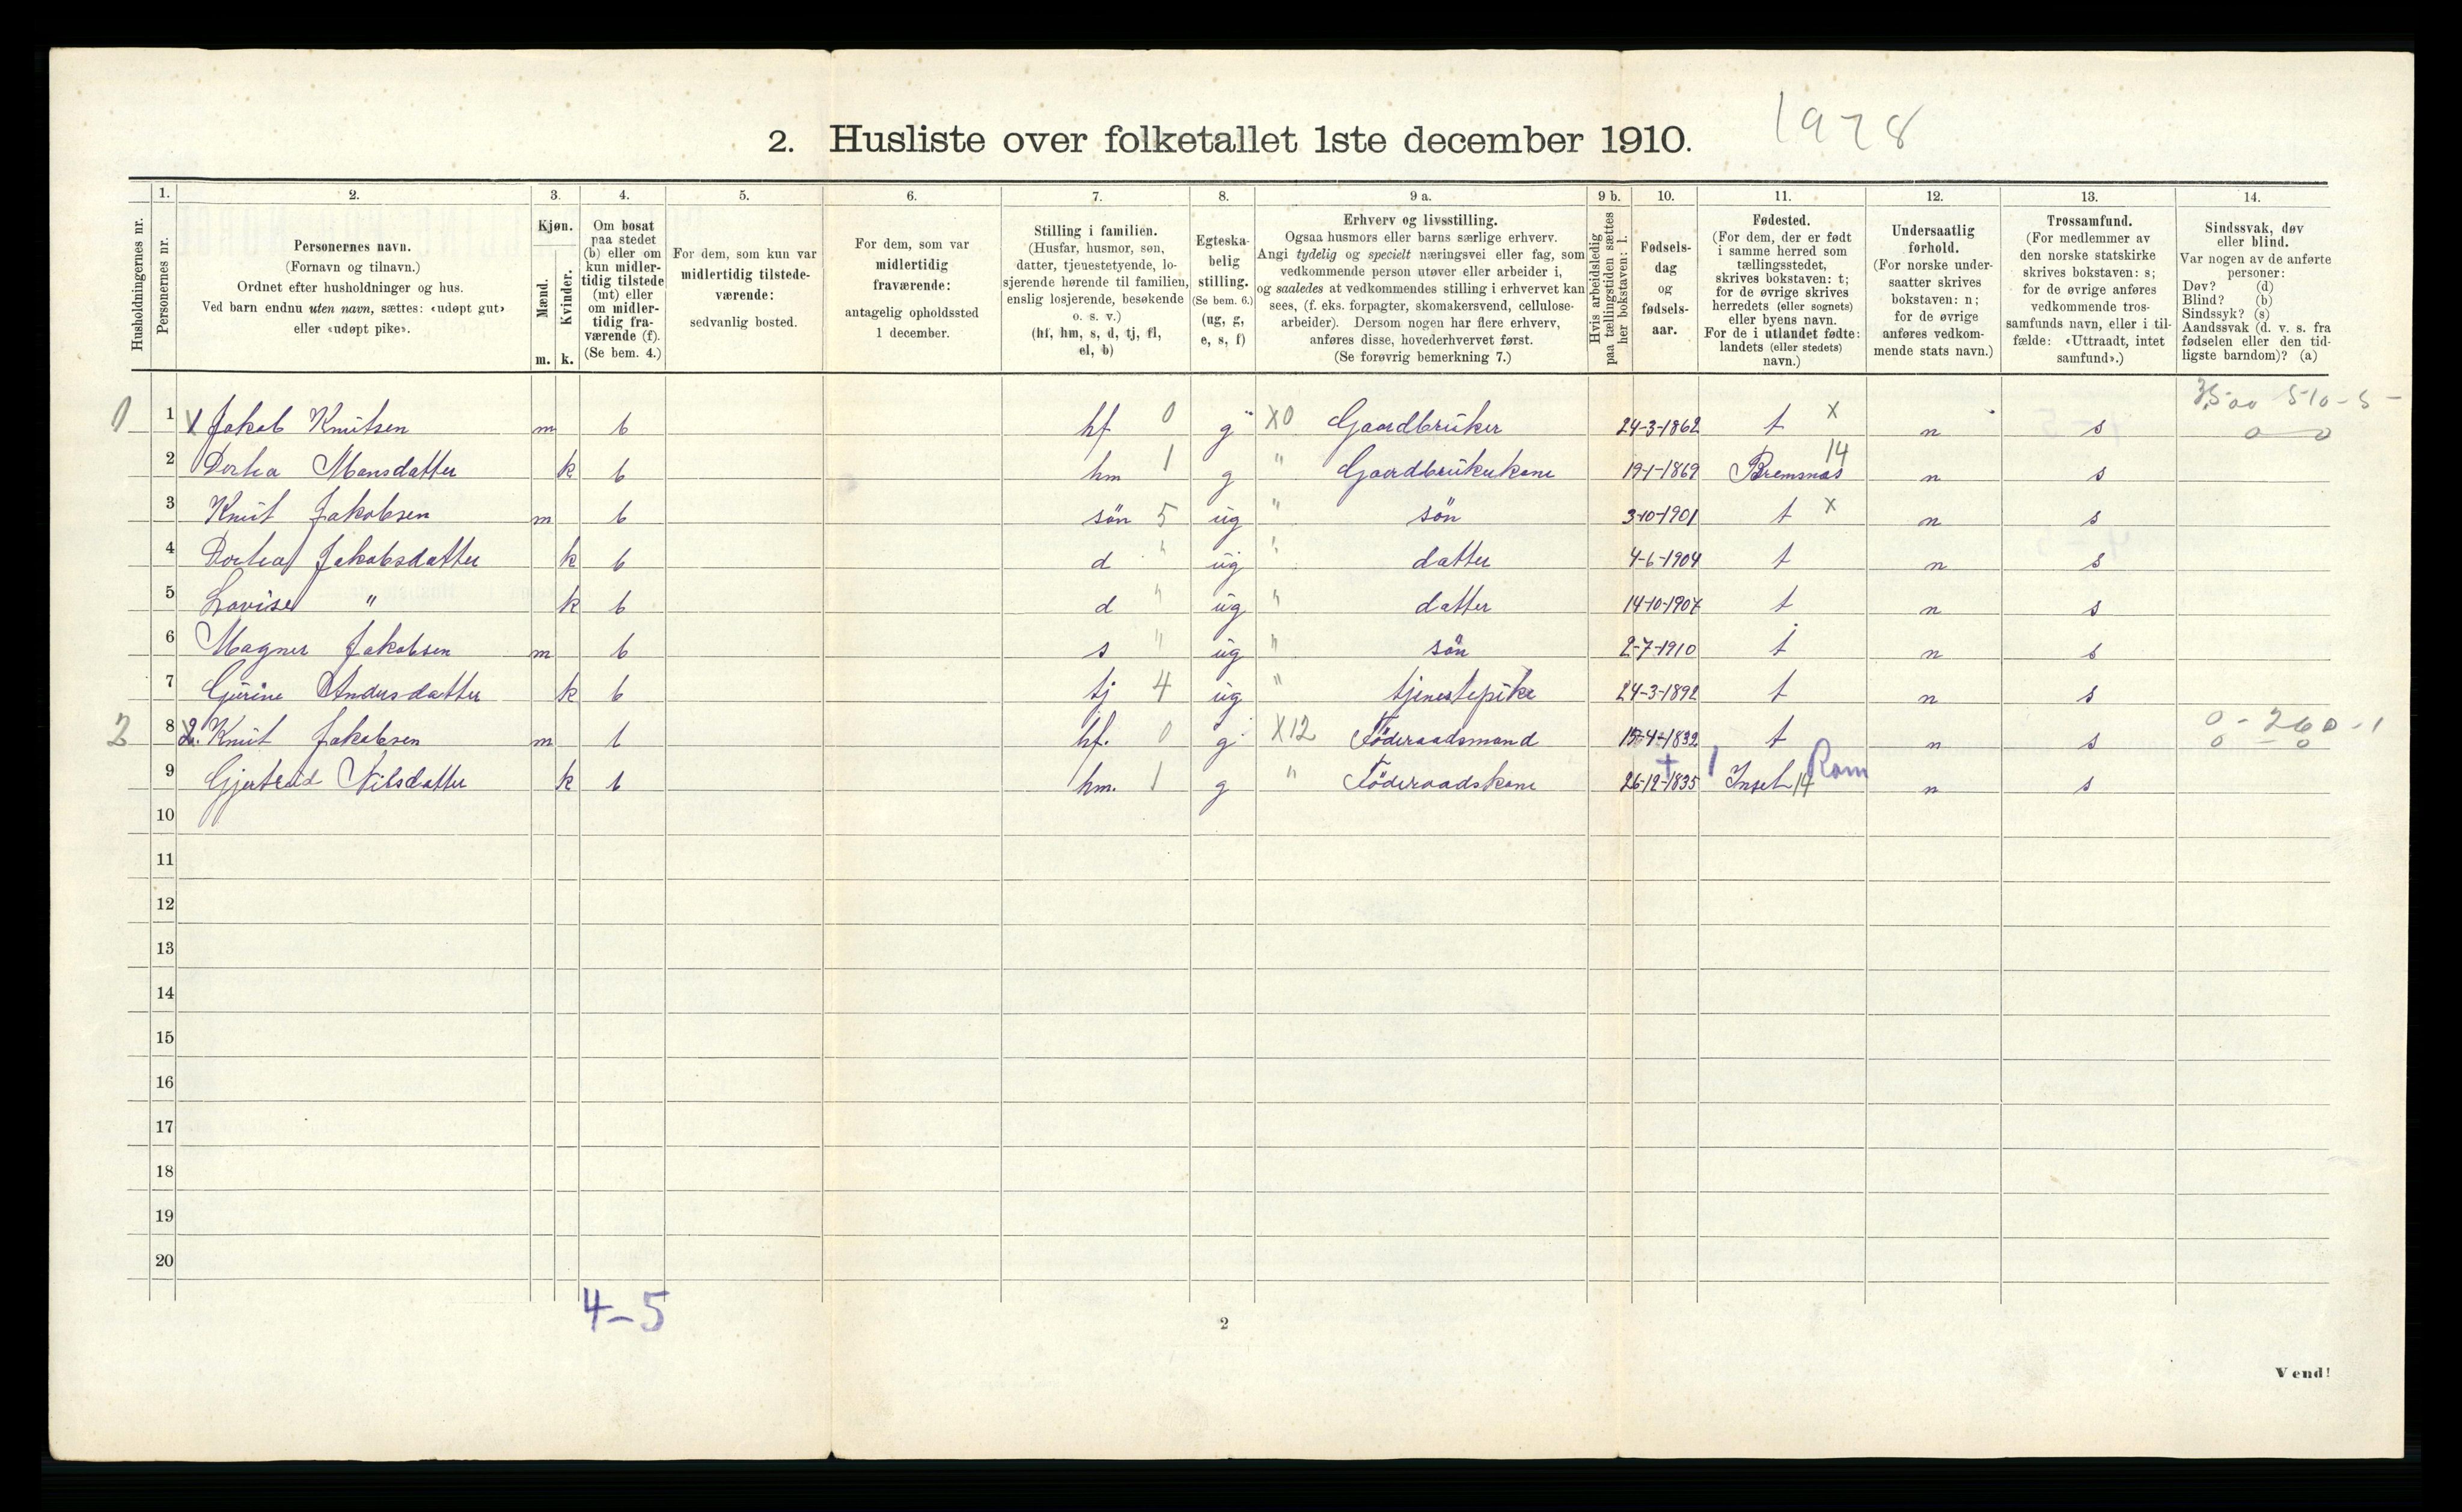 2. Husliste over folketallet 1ste december 1910. 1978
1. 2. 3. 4. 5. 6. 7. 8. 9 a. 9 b. 10. 11. 12. 13. 14.
Husholdningernes nr.
Personernes nr.
Personernes navn.
(Fornavn og tilnavn.)
Ordnet efter husholdninger og hus.
Ved barn endnu uten navn, sættes: «udøpt gut»
eller «udøpt pike».
Kjøn.
Mænd.
Kvinder.
m. k.
Om bosat
paa stedet
(b) eller om
kun midler-
tidig tilstede
(mt) eller
om midler-
tidig fra-
værende (f).
(Se bem. 4.)
For dem, som kun var
midlertidig tilstede-
værende:
sedvanlig bosted.
For dem, som var
midlertidig
fraværende:
antagelig opholdssted
1 december.
Stilling i familien.
(Husfar, husmor, søn,
datter, tjenestetyende, lo-
sjerende hørende til familien,
enslig losjerende, besøkende
o. s. v.)
(hf, hm, s, d, tj, fl,
el, b)
Egteska-
belig
stilling.
(Se bem. 6.)
(ug, g,
e, s, f)
Erhverv og livsstilling.
Ogsaa husmors eller barns særlige erhverv.
Angi tydelig og specielt næringsvei eller fag, som
vedkommende person utøver eller arbeider i,
og saaledes at vedkommendes stilling i erhvervet kan
sees, (f. eks. forpagter, skomakersvend, cellulose-
arbeider). Dersom nogen har flere erhverv,
anføres disse, hovederhvervet først.
(Se forøvrig bemerkning 7.)
Hvis arbeidsledig
paa tællingstiden sættes
her bokstaven: l.
Fødsels-
dag
og
fødsels-
aar.
Fødested.
(For dem, der er født
i samme herred som
tællingsstedet,
skrives bokstaven: t;
for de øvrige skrives
herredets (eller sognets)
eller byens navn.
For de i utlandet fødte:
landets (eller stedets)
navn.)
Undersaatlig
forhold.
(For norske under-
saatter skrives
bokstaven: n;
for de øvrige
anføres vedkom-
mende stats navn.)
Trossamfund.
(For medlemmer av
den norske statskirke
skrives bokstaven: s;
for de øvrige anføres
vedkommende tros-
samfunds navn, eller i til-
fælde: «Uttraadt, intet
samfund».)
Sindssvak, døv
eller blind.
Var nogen av de anførte
personer:
Døv? (d)
Blind? (b)
Sindssyk? (s)
Aandssvak (d. v. s. fra
fødselen eller den tid-
ligste barndom)? (a)
1 Jakob Knutsen m b hf 0 g X0 Gaardbruker 24-3-1862 t X n s
2 Dortea Monsdatter k b hm 1 g " Gaardbrukerkone 19-1-1869 Bremsnæs 14 n s
3 Knut Jakobsen m b sön 5 ug " sön 3-10-1901 t X n s
4 Dortea Jakobsdatter k b d " ug " datter 4-6-1904 t n s
5 Lovise " k b d " ug " datter 14-10-1907 t n s
6 Magner Jakobsen m b s " ug " sön 2-7-1910 t n s
7 Gurine Andersdatter k b tj 4 ug " tjenestepike 24-3-1892 t n s
2 8 2. Knut Jakobsen m b hf. 0 g X12 Föderaadsmand 15-4-1832 t n s 0-260-1
9 Gjertrud Nilsdatter k b hm. 1 g " Föderaadskone 26-12-1835 Inset 14 Rom n s
10
11
12
13
14
15
16
17
18
19
20
4-5
2
Vend!